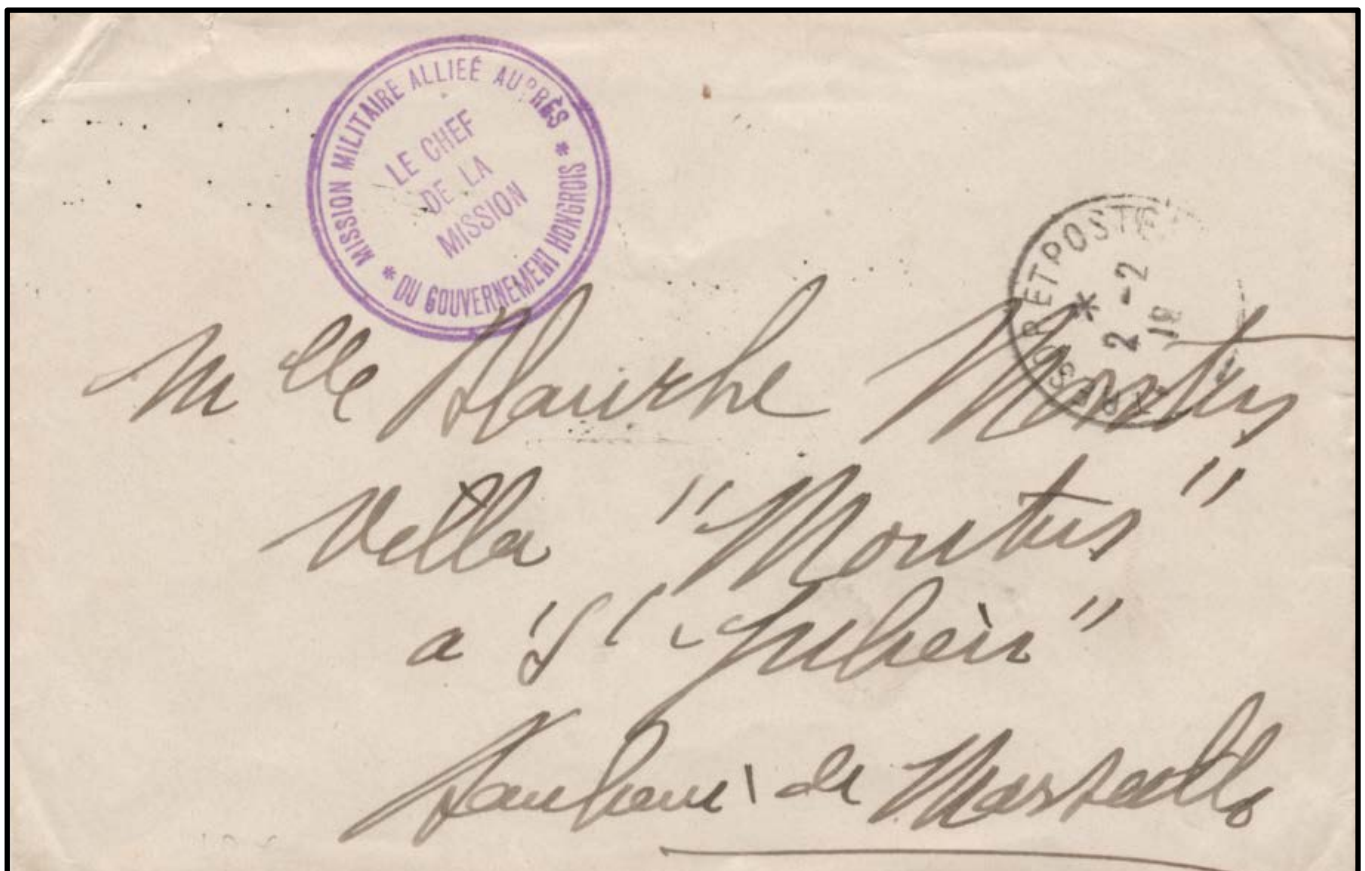 MISSION MILITAIRE ALLIEÉ AUPRÈS
* DU GOUVERNEMENT HONGROIS *
LE CHEF
DE LA
MISSION
TRESOR ET POSTES
*
2 -2
Mlle Blanche Montus
Villa "Montus"
a "St Julien"
Banlieue de Marseille